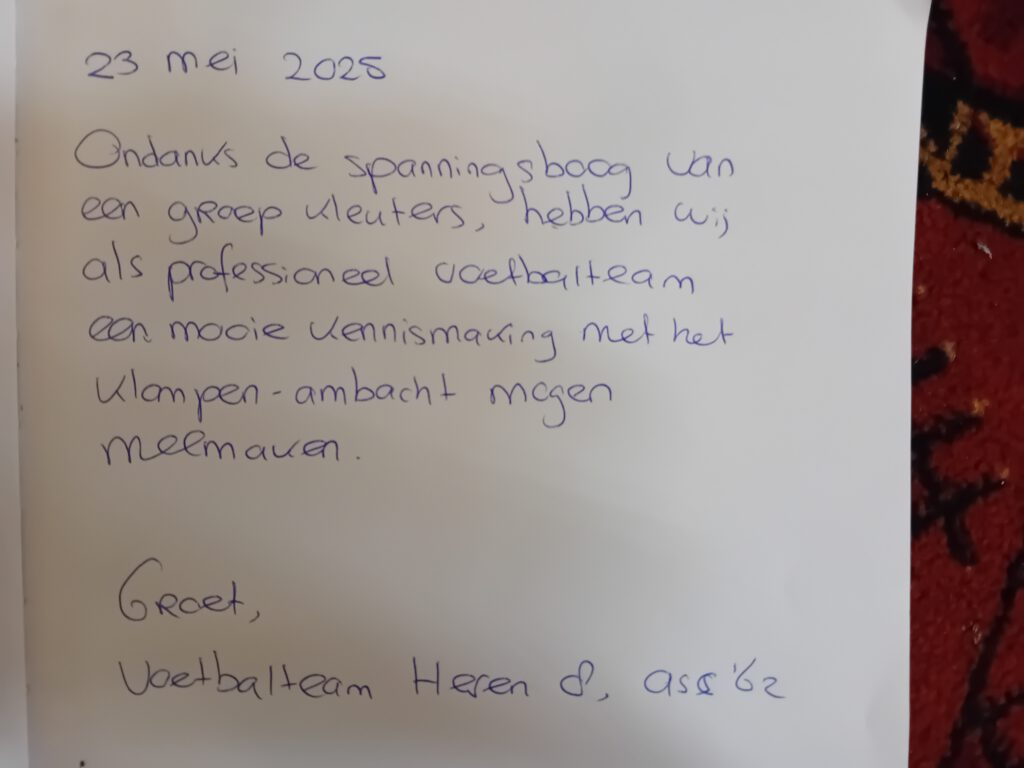 23 mei 2025
Ondanks de spanningsboog van
een groep kleuters, hebben wij
als professioneel voetbalteam
een mooie kennismaking met het
klompen-ambacht mogen
meemaken.
Groet,
Voetbalteam Heren 8, ASS '62